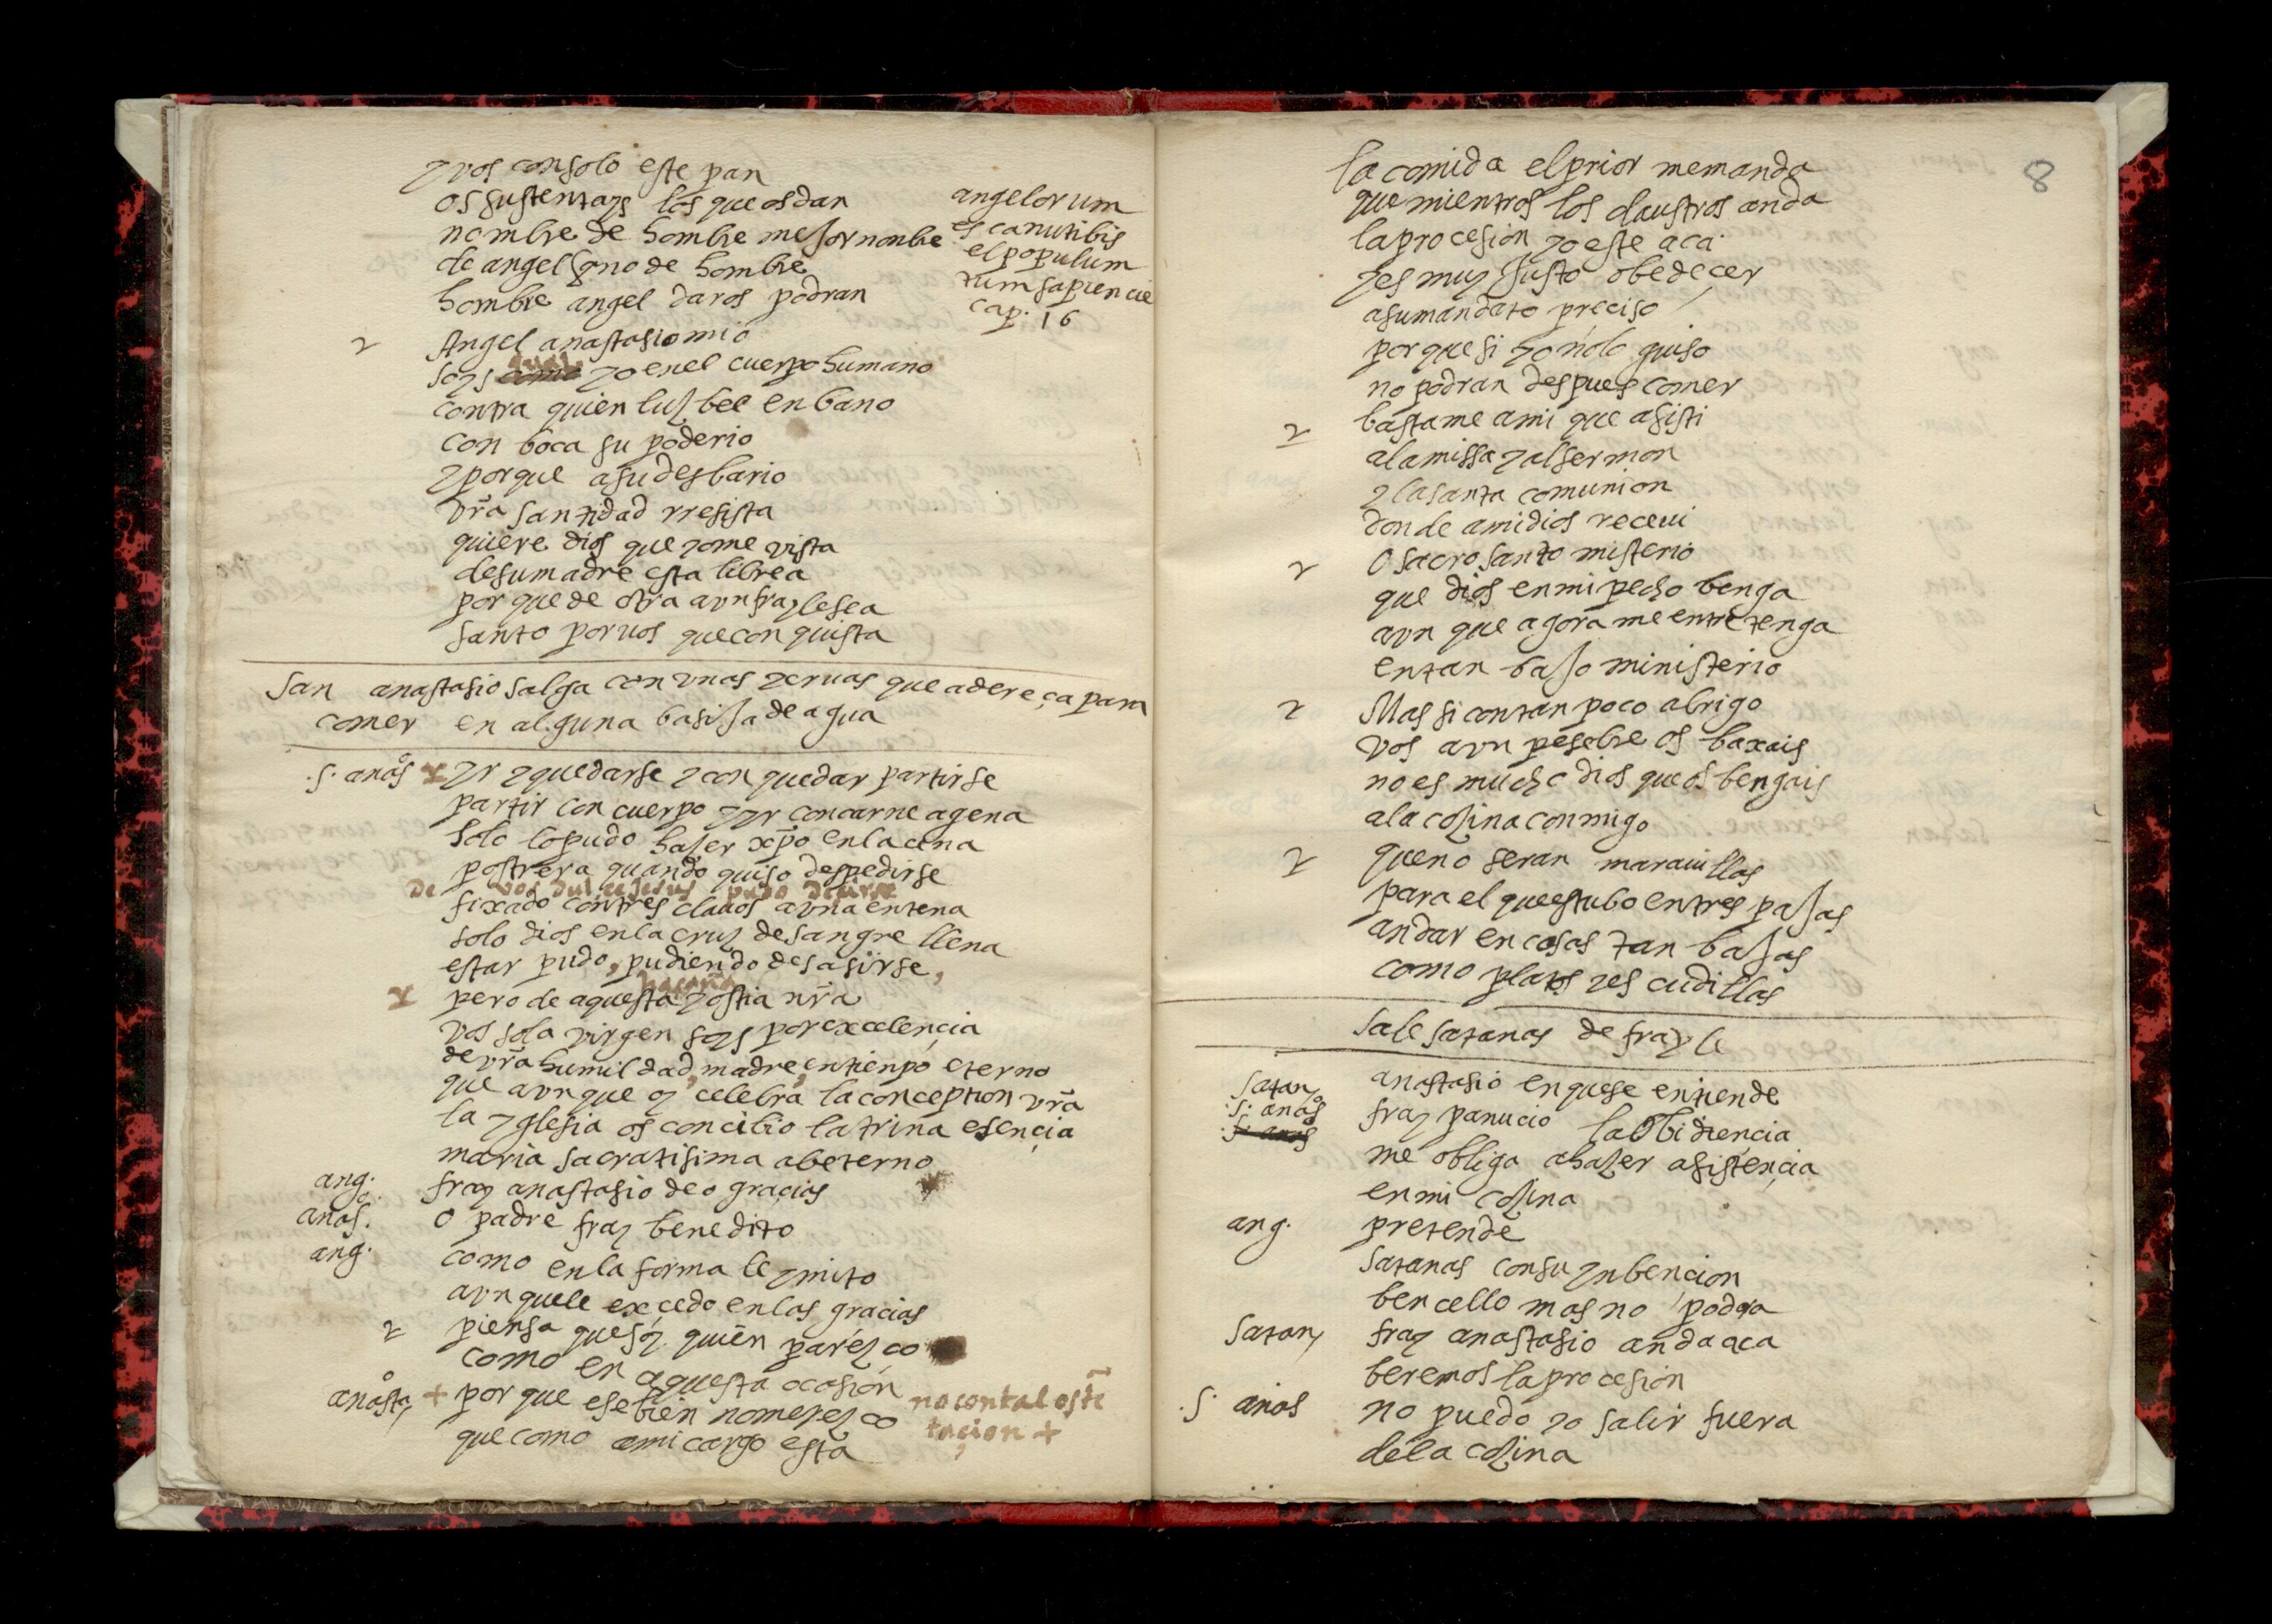 yvos con solo este pan
os sustentays los que os dan
nombre de hombre mejor nonbre
de angel y no de hombre
hombre angel daros podran
angelorum
es ca nutibis
el populum
tum sapiencie
cap. 16
Angel anastasio mio
soys como yo en el cuerpo humano
contra quien luzbel en bano
con boca su poderio
y porque a su desbario
vrã santidad rresista
quiere dios que yo me vista
de su madre esta librea
porque de otra aun frayle sea
santo por vos que conquista
San anastasio salga con vnas yeruas que adereça para
comer en alguna basija de agua
.s. anasº yr y quedarse y con quedar partirse
partir con cuerpo y yr con carne agena
solo lo pudo hazer xp̃o en la cena
postrera quando quiso despedirse
de vos dulce Jesus pudo decirse
fixado con tres clauos a vna entena
solo dios en la cruz de sangre llena
estar pudo, pudiendo desasirse,
hacaña
pero de aquesta ystia nrã
vos sola virgen soys por excelencia
de vrã humildad, madre, en tienpo eterno
que aunque oy celebra la conception vrã
la yglesia os concibio la trina esençia
maria sacratisima abeterno
ang. fray anastasio deo gracias
anasº. o padre fray benedito
ang. como en la forma le ymito
aunque le excedo en las gracias
piensa que soy quien parezco
como en aquesta ocasion
anastaº + porque ese bien no merezco
no con tal ostẽ
taçion +
que como a mi cargo esta
8
la comida el prior me manda
que mientros los claustros anda
la procesion yo este aca
y es muy justo obedeçer
a su mandato preciso
porque si yo no lo guiso
no podran despues comer
bastame a mi que asisti
a la missa y al sermon
y la santa comunion
donde a mi dios receui
O sacrosanto misterio
que dios en mi pecho benga
aun que agora me entretenga
en tan bajo ministerio
Mas si con tan poco abrigo
vos a vn pesebre os baxais
no es mucho dios que os bengais
a la cozina conmigo
que no seran marauillas
para el que estubo entre pajas
andar en cosas tan bajas
como platos y escudillas
Sale satanas de frayle
Satan anastasio en que se entiende
.s. anasº fray panucio la obidiencia
.s. anas
me obliga a hazer asistençia
en mi cozina
ang. pretende
satanas con su ynbencion
bencello mas no podra
Satan fray anastasio anda aca
beremos la procesion
.s. anas no puedo yo salir fuera
de la cozina